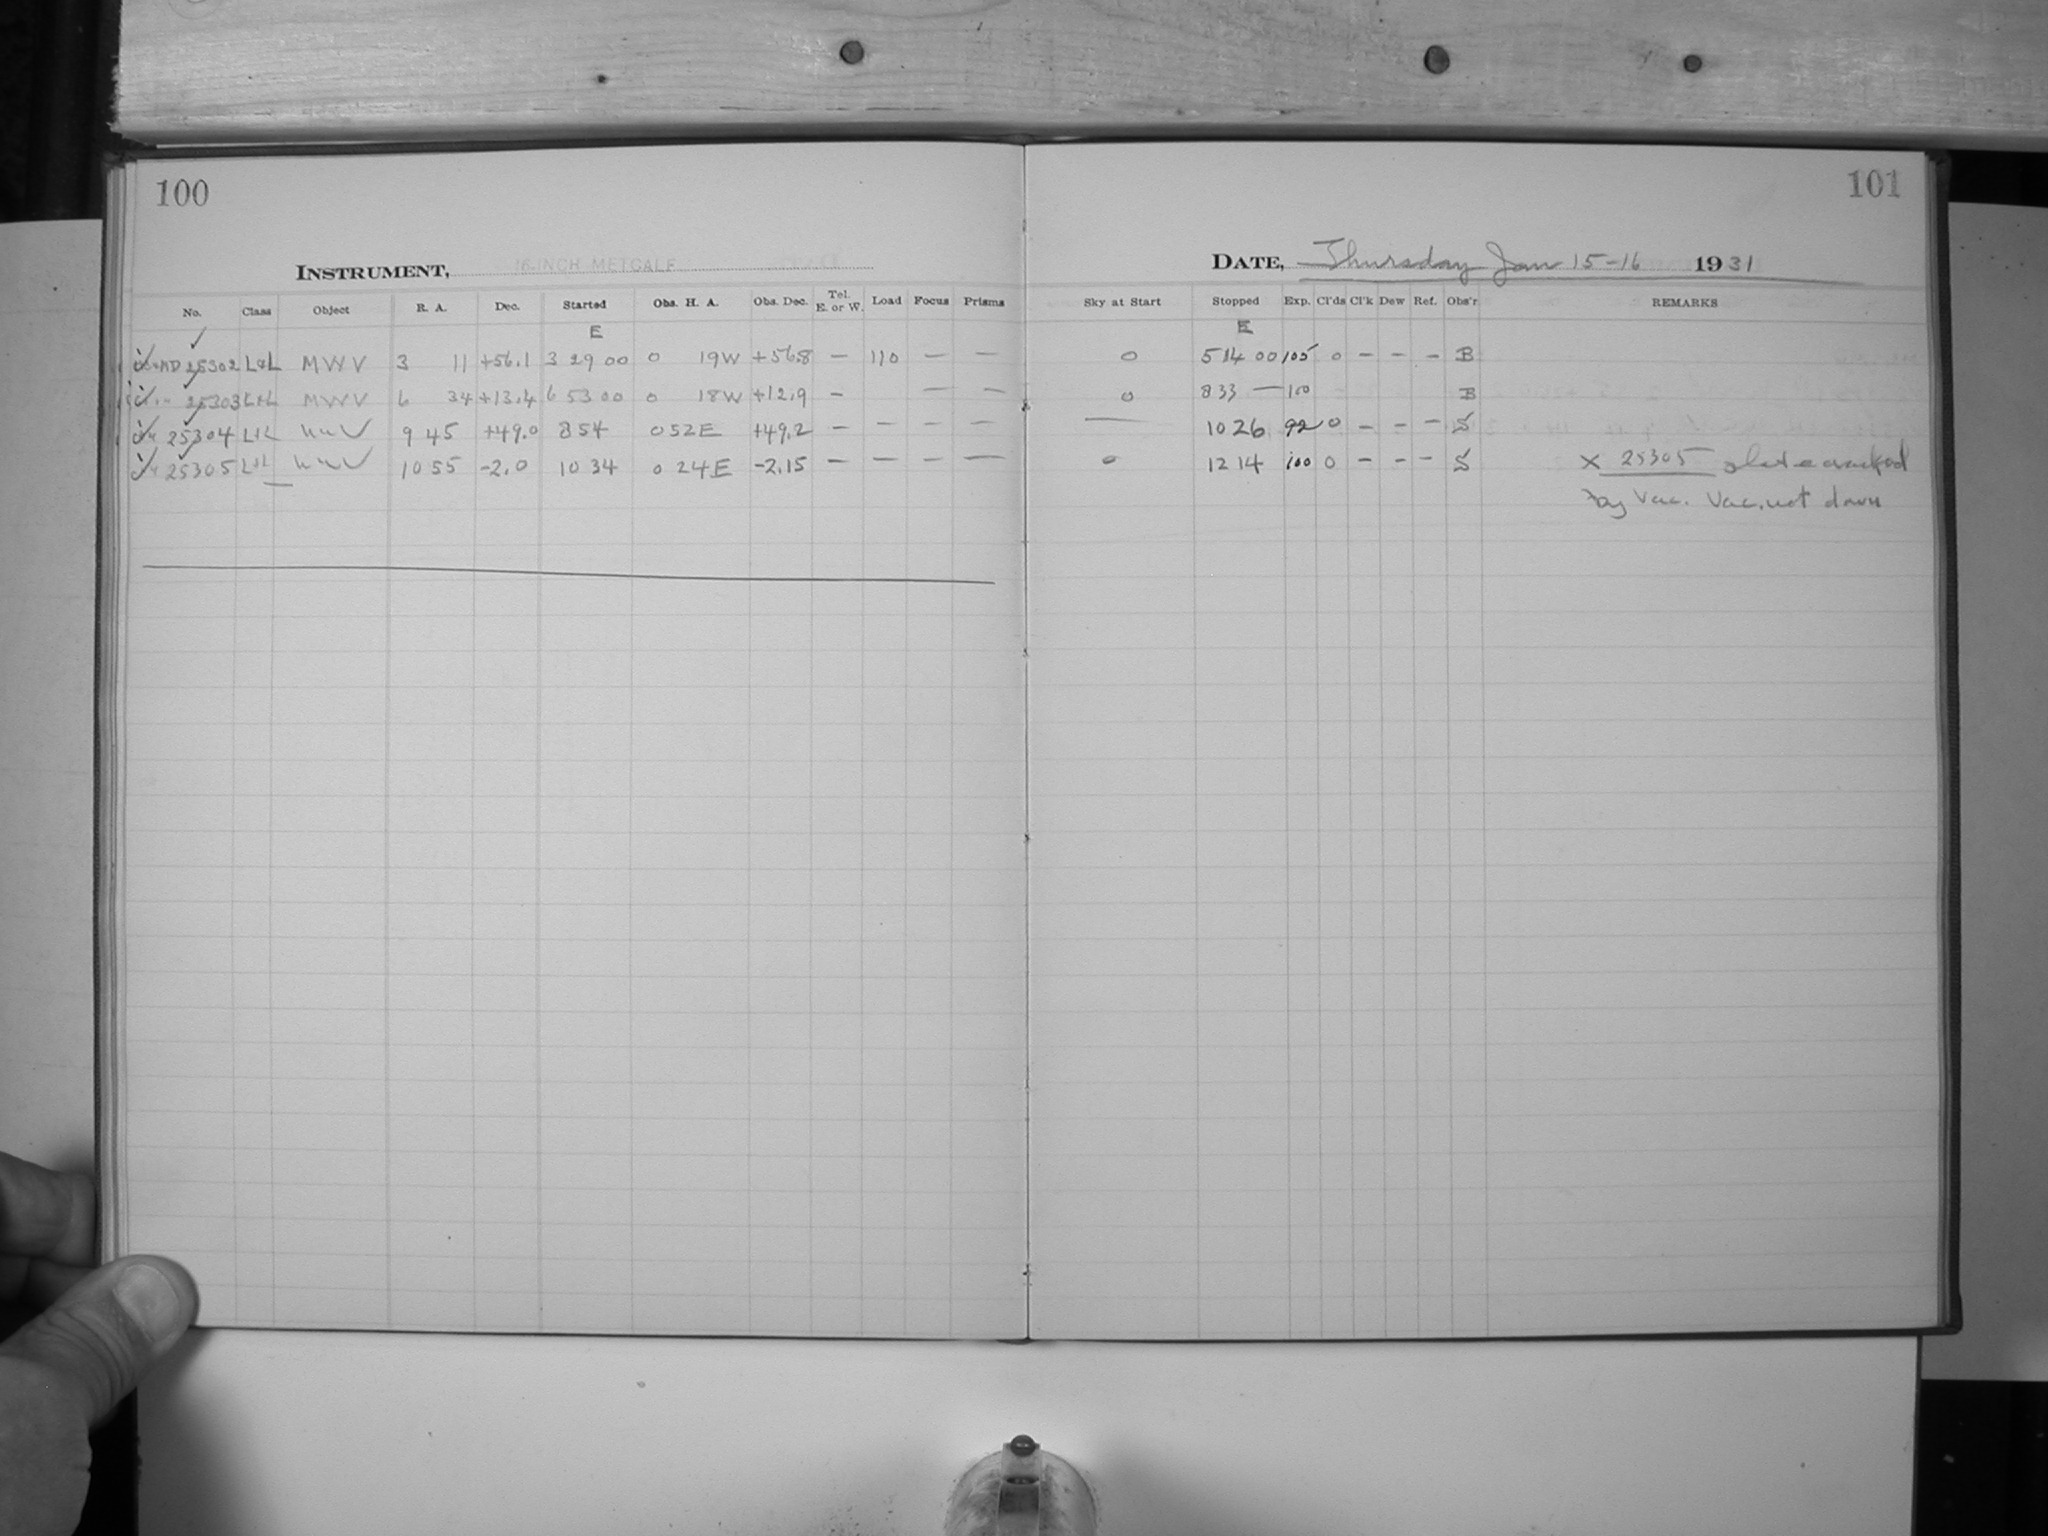 100
101
INSTRUMENT, 16-INCH METCALF
DATE, Thursday Jan 15-16 1931
No. Class Object R. A. Dec. Started Obs. H. A. Obs. Dec. Tel. E. or W. Load Focus Prisms Sky at Start Stopped Exp. Cl'ds Cl'k Dew Ref. Obs'r REMARKS
E E
25302 L+L MWV 3 11 +56.1 3 29 00 0 19W +56.8 — 110 — — 0 5 14 00 105 0 — — — B
25303 L+L MWV 6 34 +13.4 6 53 00 0 18W +12.9 — — — 0 8 33 — 100 B
25304 L+L MWV 9 45 +49.0 8 54 0 52E +49.2 — — — — — 10 26 92 0 — — — S
25305 L+L MWV 10 55 -2.0 10 34 0 24E -2.15 — — — — 0 12 14 100 0 — — — S x 25305 plate cracked
by Vac. Vac. not down